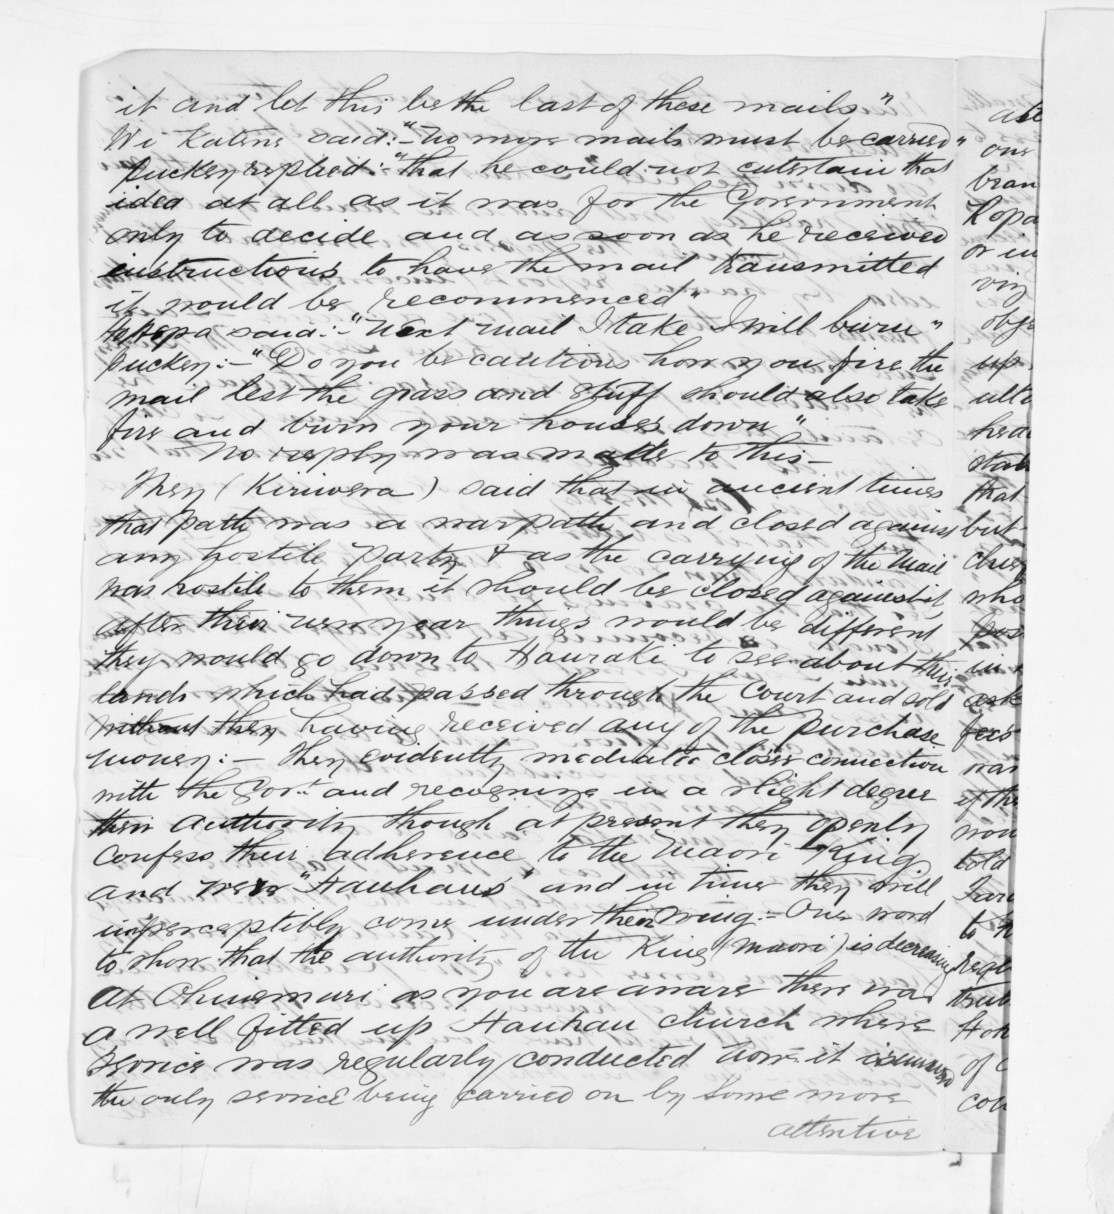 it and let this be the last of these mails"
Wi Katene said:- "no more mails must be carried"
Puckey replied:- "that he could not entertain that
idea at all as it was for the Government
only to decide and as soon as he received
instructions to have the mail transmitted
it would be recommenced"
Hopepa said:- "Next mail I take I will burn"
Puckey:- "Do you be cautious how you fire the
mail lest the grass and stuff should also take
fire and burn your houses down"
No reply was made to this-
They (Kiriwera) said that in ancient times
that path was a war path, and closed against
any hostile party & as the carrying of the Mail
was hostile to them it should be closed against it
after their new year things would be different
they would go down to Hauraki to see about their
lands which had passed through the Court and sold
without they having received any of the purchase
money:- They evidently meditate closer connection
with the Govt. and recognize in a slight degree
their authority though at present they openly
confess their adherence to the Maori King
and were "Hauhaus" and in time they will
imperceptibly come under their wing:- One word
to show that the authority of the King (Maori) is decreasing
At Ohinemuri as you are aware there was
a well fitted up Hauhau church where
service was regularly conducted now it is
the only service being carried on by some more
attentive
one
bean
or in
ving
obje
up
alto
head
that
but
who
in
ask
war
if the
told
to
of
con